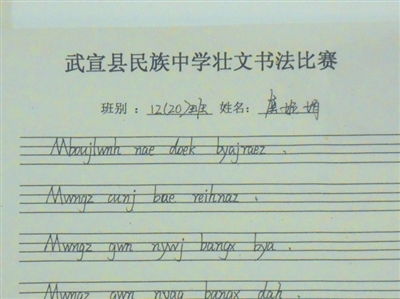 武宣县民族中学壮文书法比赛
班别：12(20)班 姓名：
Mboujlwnh nae doek byajraez .
Mwngz cunj bae reihnaz .
Mwngz gwn nywj bangx bya .
Mwngz gwn nyaq bangx dah .